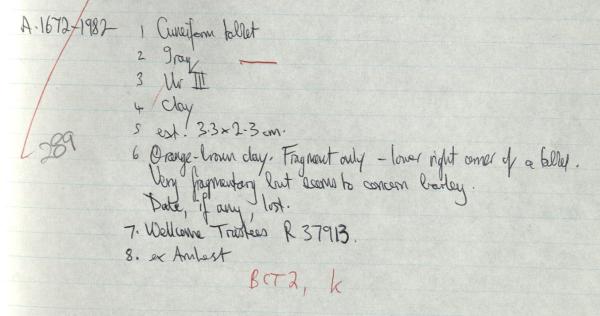 A.1672-1982 1 Cuneiform tablet
2 Iraq
3 Ur III
4 Clay
5 est. 3.3 x 2.3 cm.
289
6 Orange-brown clay. Fragment only - lower right corner of a tablet.
Very fragmentary but seems to concern barley.
Date, if any, lost.
7. Wellcome Trustees R 37913.
8. ex Amherst
BCT2, k